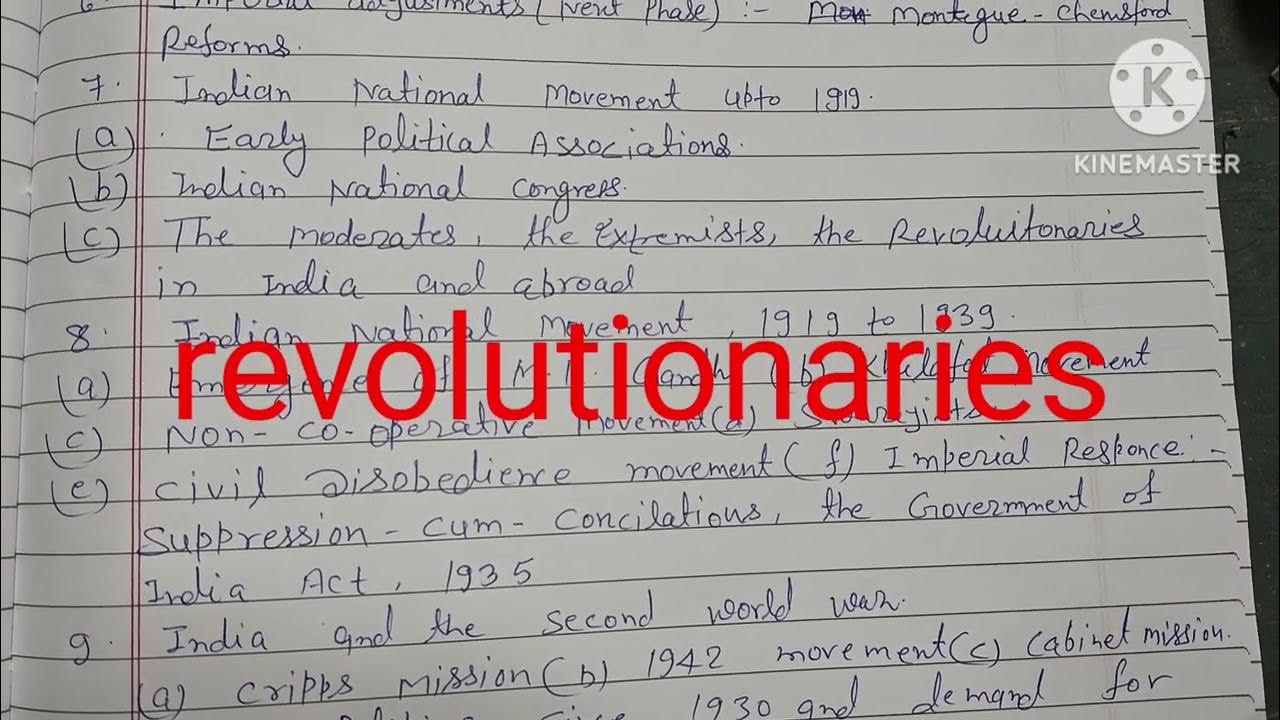 adjustments (Next Phase) :- Montegue - Chemsford
Reforms.
7. Indian National Movement upto 1919.
(a) Early Political Associations.
(b) Indian National Congress.
(c) The moderates, the Extremists, the Revoluitonaries
in India and abroad
8. Indian National Movement, 1919 to 1939.
revolutionaries
(a) of M.K. Gandhi (b) movement
(c) Non-co-operative movement (d) Swarajists
(e) civil Disobedience movement (f) Imperial Responce :-
suppression - cum - concilations, the Government of
India Act, 1935
9. India and the second world war.
(a) cripps mission (b) 1942 movement (c) Cabinet mission.
1930 and demand for
K
KINEMASTER